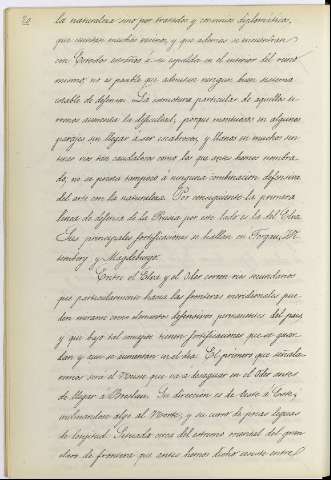 80
la naturaleza sino por tratados y convenios diplomáticos,
que cuentan muchos vecinos, y que además se encuentran
con Estados estraños a su espalda en el interior del suelo
mismo no es posible que admitan ningun buen sistema
estable de defensa. La estructura particular de aquellos te-
rrenos aumenta la dificultad, porque montuosos en algunos
parajes sin llegar a ser escabrosos, y llanos en muchos sin
rios tan caudalosos como los que antes hemos nombra-
do, no se presta tampoco a ninguna combinacion defensiva
del arte con la naturaleza. Por consiguiente la primera
linea de defensa de la Prusia por este lado es la del Elva.
Sus principales fortificaciones se hallan en Torgau, Wi-
temberg y Magdeburgo.
Entre el Elva y el Oder corren rios secundarios
que particularmente hacia las fronteras meridionales pue-
den mirarse como elementos defensivos permanentes del pais
y que bajo tal concepto tienen fortificaciones que se guar-
dan y aun se aumentan en el dia. El primero que señala-
remos será el Neisse que va a desaguar en el Oder antes
de llegar a Breslau. Su direccion es de Oeste a Este,
inclinandose algo al Norte; y su curso de pocas leguas
de longitud. Situado cerca del estremo oriental del gran
claro de frontera que antes hemos dicho existe entre